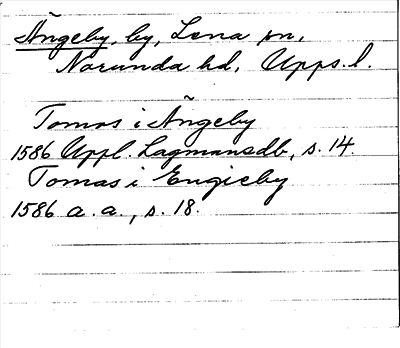 Ängeby, by, Lena sn,
Norunda hd, Upps. l.
Tomas i Ängeby
1586 Uppl. Lagmansdb, s. 14.
Tomas i Engieby
1586 a. a., s. 18.